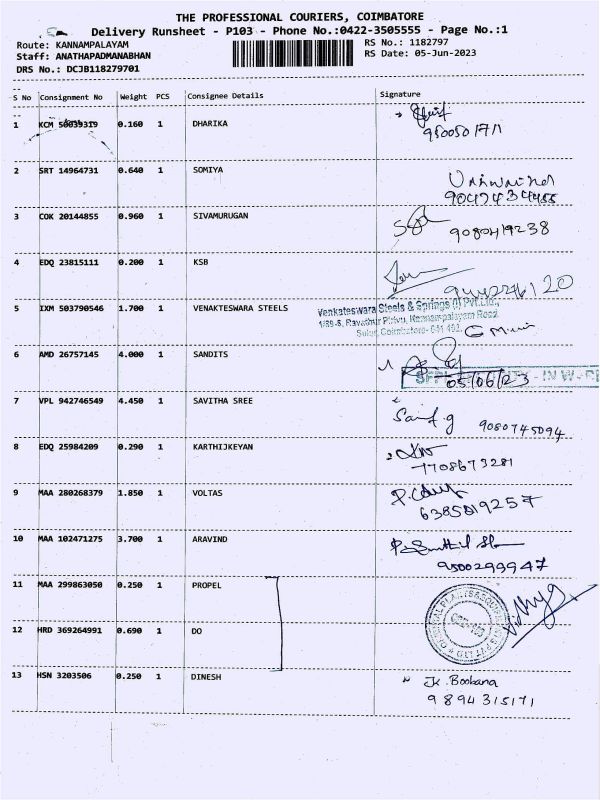 THE PROFESSIONAL COURIERS, COIMBATORE
Delivery Runsheet - P103 - Phone No.:0422-3505555 - Page No.:1
Route: KANNAMPALAYAM
Staff: ANATHAPADMANABHAN
DRS No.: DCJB118279701
RS No.: 1182797
RS Date: 05-Jun-2023
S No Consignment No Weight PCS Consignee Details Signature
1 KCM 50039319 0.160 1 DHARIKA
2 SRT 14964731 0.640 1 SOMIYA
9047434455
3 COK 20144855 0.960 1 SIVAMURUGAN
9080419238
4 EDQ 23815111 0.200 1 KSB
5 IXM 503790546 1.700 1 VENAKTESWARA STEELS
Venkateswara Steels & Springs (I) Pvt.Ltd.,
Sulur, Coimbatore- 641 402.
6 AMD 26757145 4.000 1 SANDITS
05/06/23
7 VPL 942746549 4.450 1 SAVITHA SREE
9080745094
8 EDQ 25984209 0.290 1 KARTHIJKEYAN
7708673281
9 MAA 280268379 1.850 1 VOLTAS
6385819257
10 MAA 102471275 3.700 1 ARAVIND
9500299947
11 MAA 299863050 0.250 1 PROPEL
12 HRD 369264991 0.690 1 DO
13 HSN 3203506 0.250 1 DINESH
Jk. Boobana
9894315171